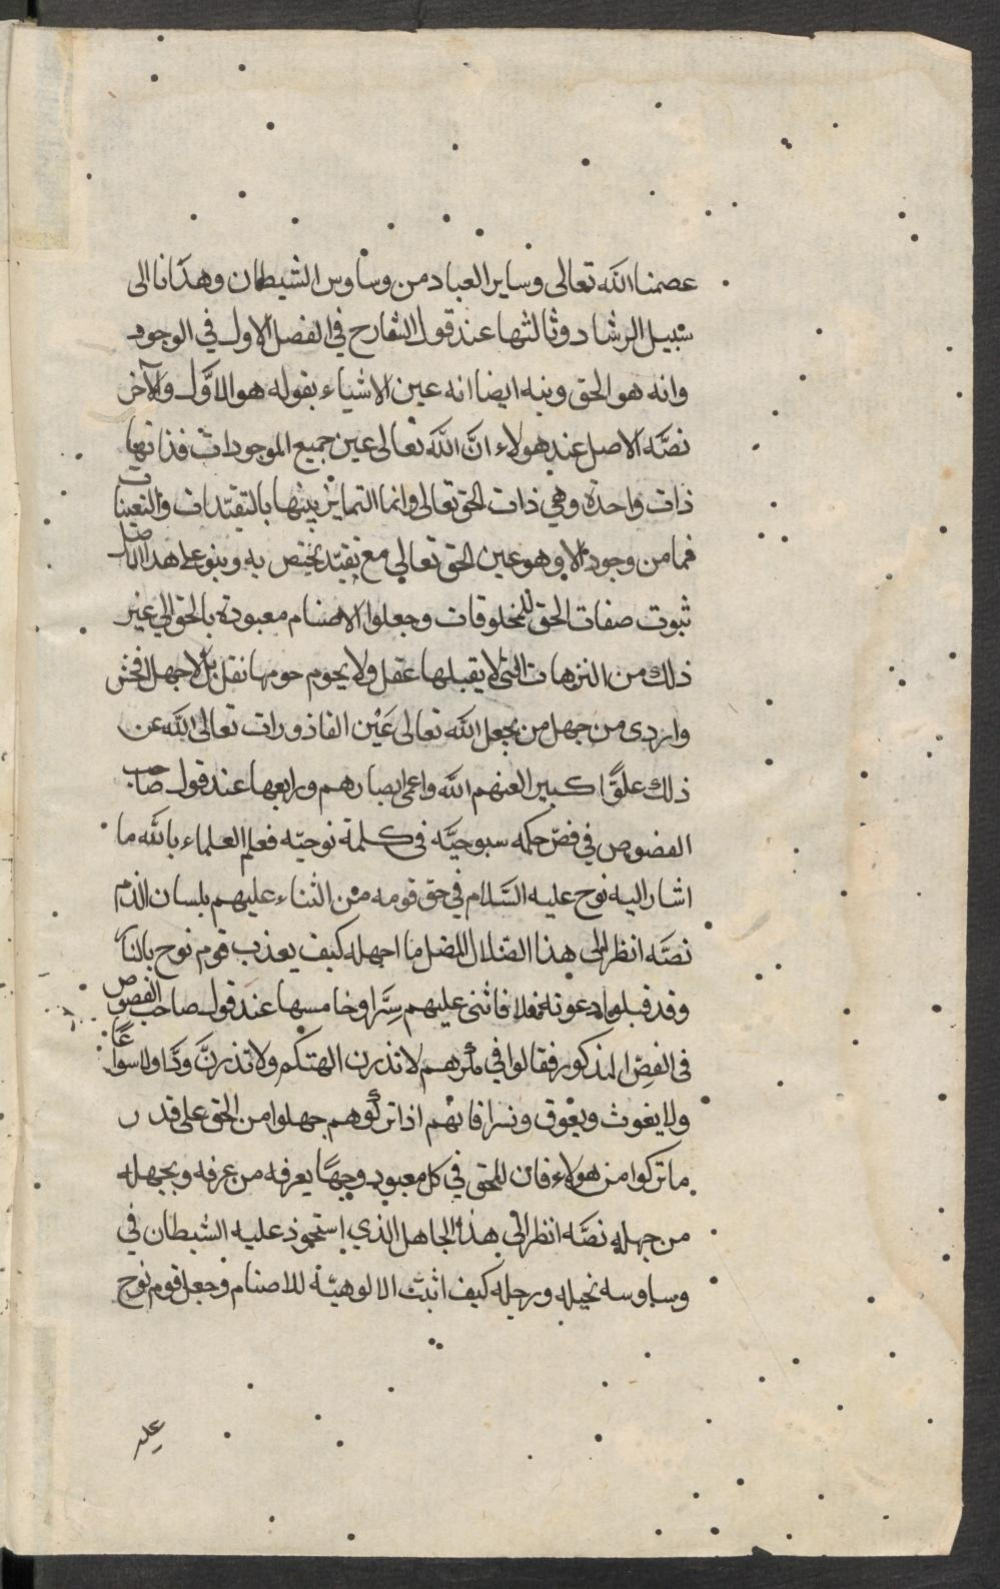 عصمنا الله تعالى وساير العباد من وساوس الشيطان وهدانا الى
سبيل الرشاد وثالثها عند قول الشارح في الفصل الاول في الوجود
وانه هو الحق ونبه ايضا انه عين الاشياء بقوله هو الاوّل والآخر
نصّه الاصل عند هولاء انّ الله تعالى عين جميع الموجودات فذاتها
ذات واحدة وهي ذات الحق تعالى وانما التمايز بينها بالتقيّدات والتعينات
فما من وجود الا وهو عين الحق تعالى مع تقيّد يختص به وبنو على هذا الاصل
ثبوت صفات الحق للمخلوقات وجعلوا الاصنام معبودة بالحق الى غير
ذلك من النزهات التي لا يقبلها عقل ولا يحوم حومها نقل بل لا جهل افحش
واردى من جهل من يجعل الله تعالى عَيْن القاذورات تعالى الله عن
ذلك علوًّا كبيرا لعنهم الله واعمى ابصارهم ورابعها عند قول صاحب
الفصوص في فصّ حكمه سبوحيّه في كلمة نوحيّه فعلم العلماء بالله ما
اشار اليه نوح عليه السّلام في حق قومه من الثناء عليهم بلسان الذم
نصّه انظر الى هذا الضلال المضل ما اجهله كيف يعذب قوم نوح بالنار
وقد قبلوا دعوته فاثنى عليهم سرّا وخامسها عند قول صاحب الفصوص
في الفصّ المذكور فقالوا في مكرهم لا تذرن الهتكم ولا تذرنّ ودّا ولا سواعًا
ولا يغوث ويعوق ونسرا فانهم اذا تركوهم جهلوا من الحق على قدر
ما تركوا من هولاء فان للحق في كل معبود وجهًا يعرفه من عرفه ويجهله
من جهله نصّه انظر الى هذا الجاهل الذي استحوذ عليه الشيطان في
وساوسه بخيله ورجله كيف اثبت الالوهيّة للاصنام وجعل قوم نوح
عليه